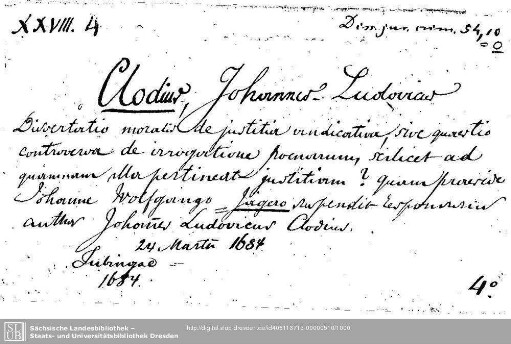 XXVIII. 4
Diss. jur. crim. 54, 10
= 0
Clodius, Johannes Ludovicus
Dissertatio moralis de justitia vindicativa, sive quaestio
controversa de irrogatione poenarum, scilicet ad
quamnam illa pertineat justitiam? quam praeside
Johanne Wolfgango = Jägero suspendit responsurus
author Johañes Ludovicus Clodius.
24 Martii 1684
Tubingae =
1684.
4°
SLUB
Sächsische Landesbibliothek –
Staats- und Universitätsbibliothek Dresden